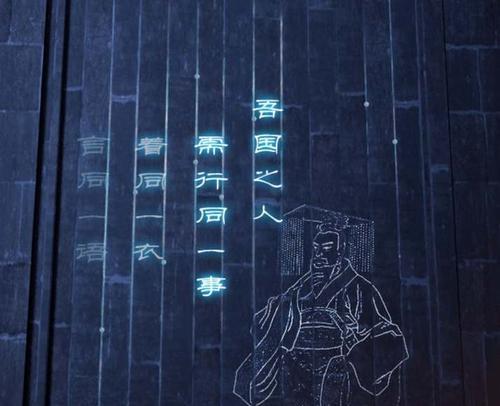 吾国之人
需行同一事
着同一衣
言同一语